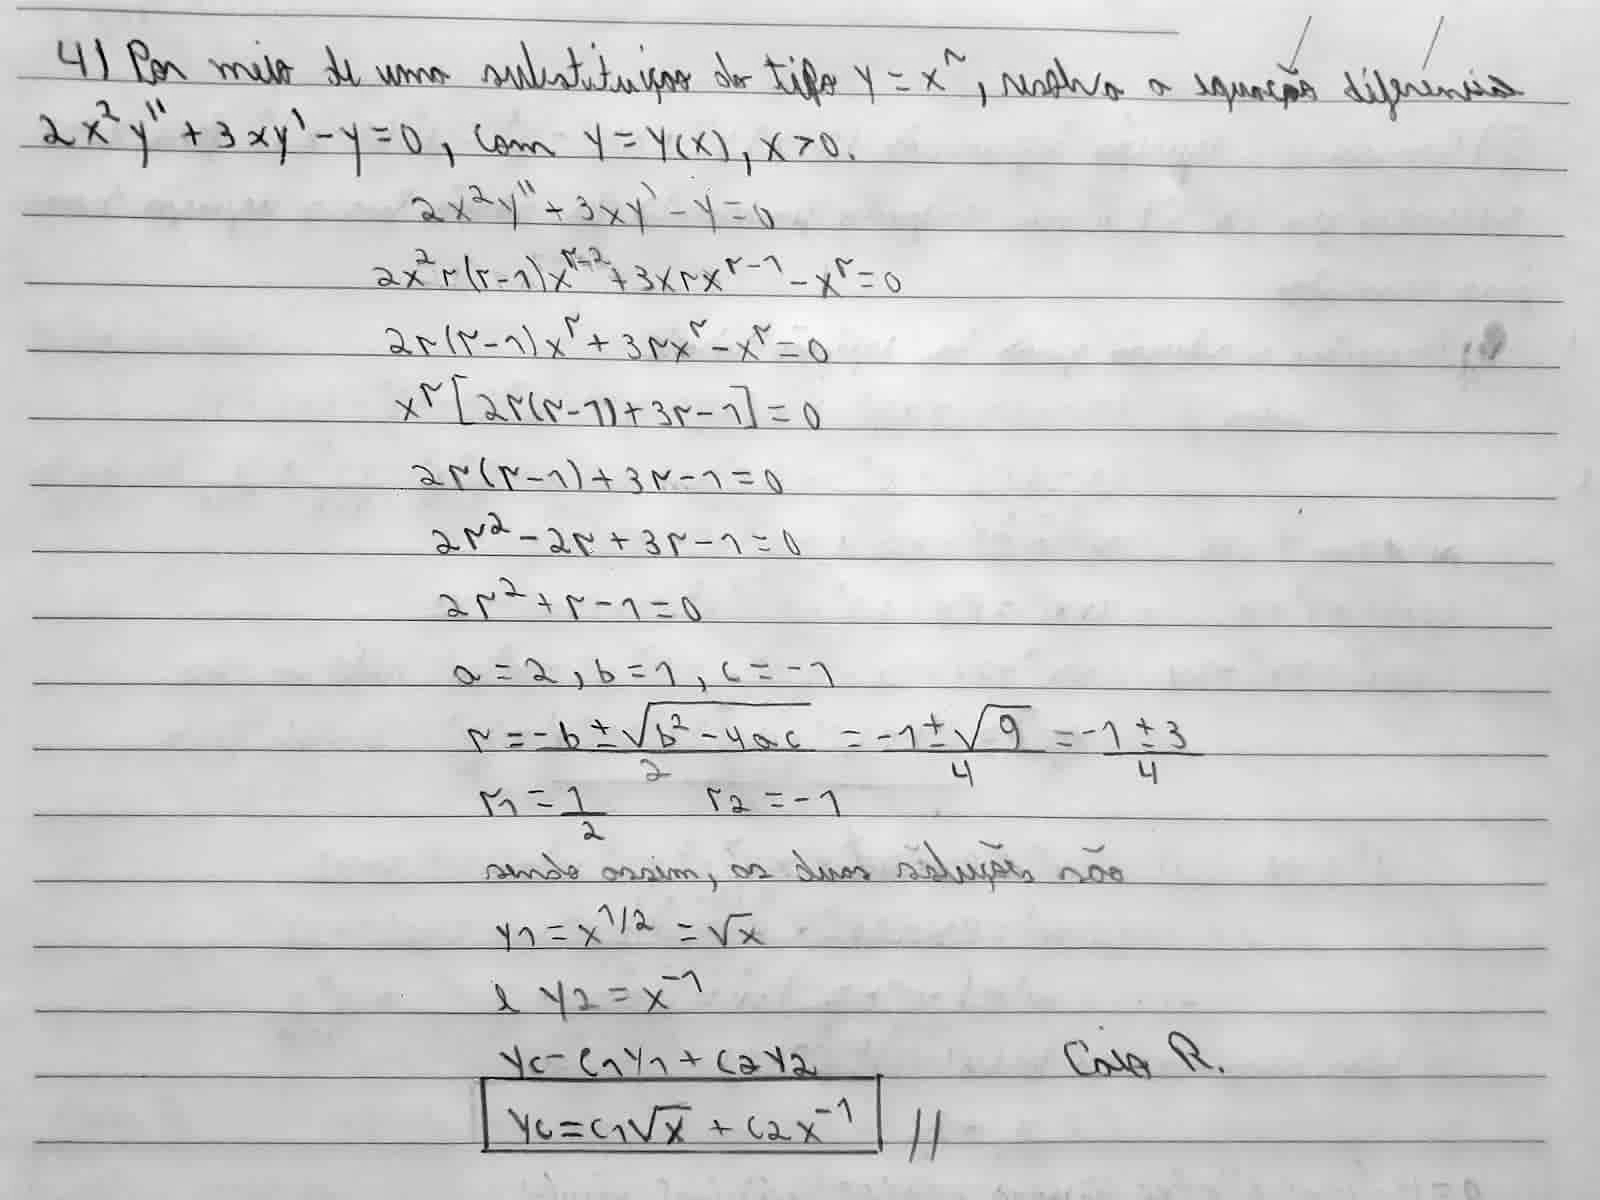 4) Por meio de uma substituição do tipo y = x^r, resolva a equação diferencial
2x²y'' + 3xy' - y = 0, com y = y(x), x > 0.
2x²y'' + 3xy' - y = 0
2x²r(r-1)x^(r-2) + 3xrx^(r-1) - x^r = 0
2r(r-1)x^r + 3rx^r - x^r = 0
x^r[2r(r-1) + 3r - 1] = 0
2r(r-1) + 3r - 1 = 0
2r² - 2r + 3r - 1 = 0
2r² + r - 1 = 0
a = 2, b = 1, c = -1
r = (-b ± √(b² - 4ac))/2 = (-1 ± √9)/4 = (-1 ± 3)/4
r1 = 1/2 r2 = -1
sendo assim, as duas soluções são
y1 = x^(1/2) = √x
e y2 = x^-1
yc = c1y1 + c2y2 R.
yc = c1√x + c2x^-1 //